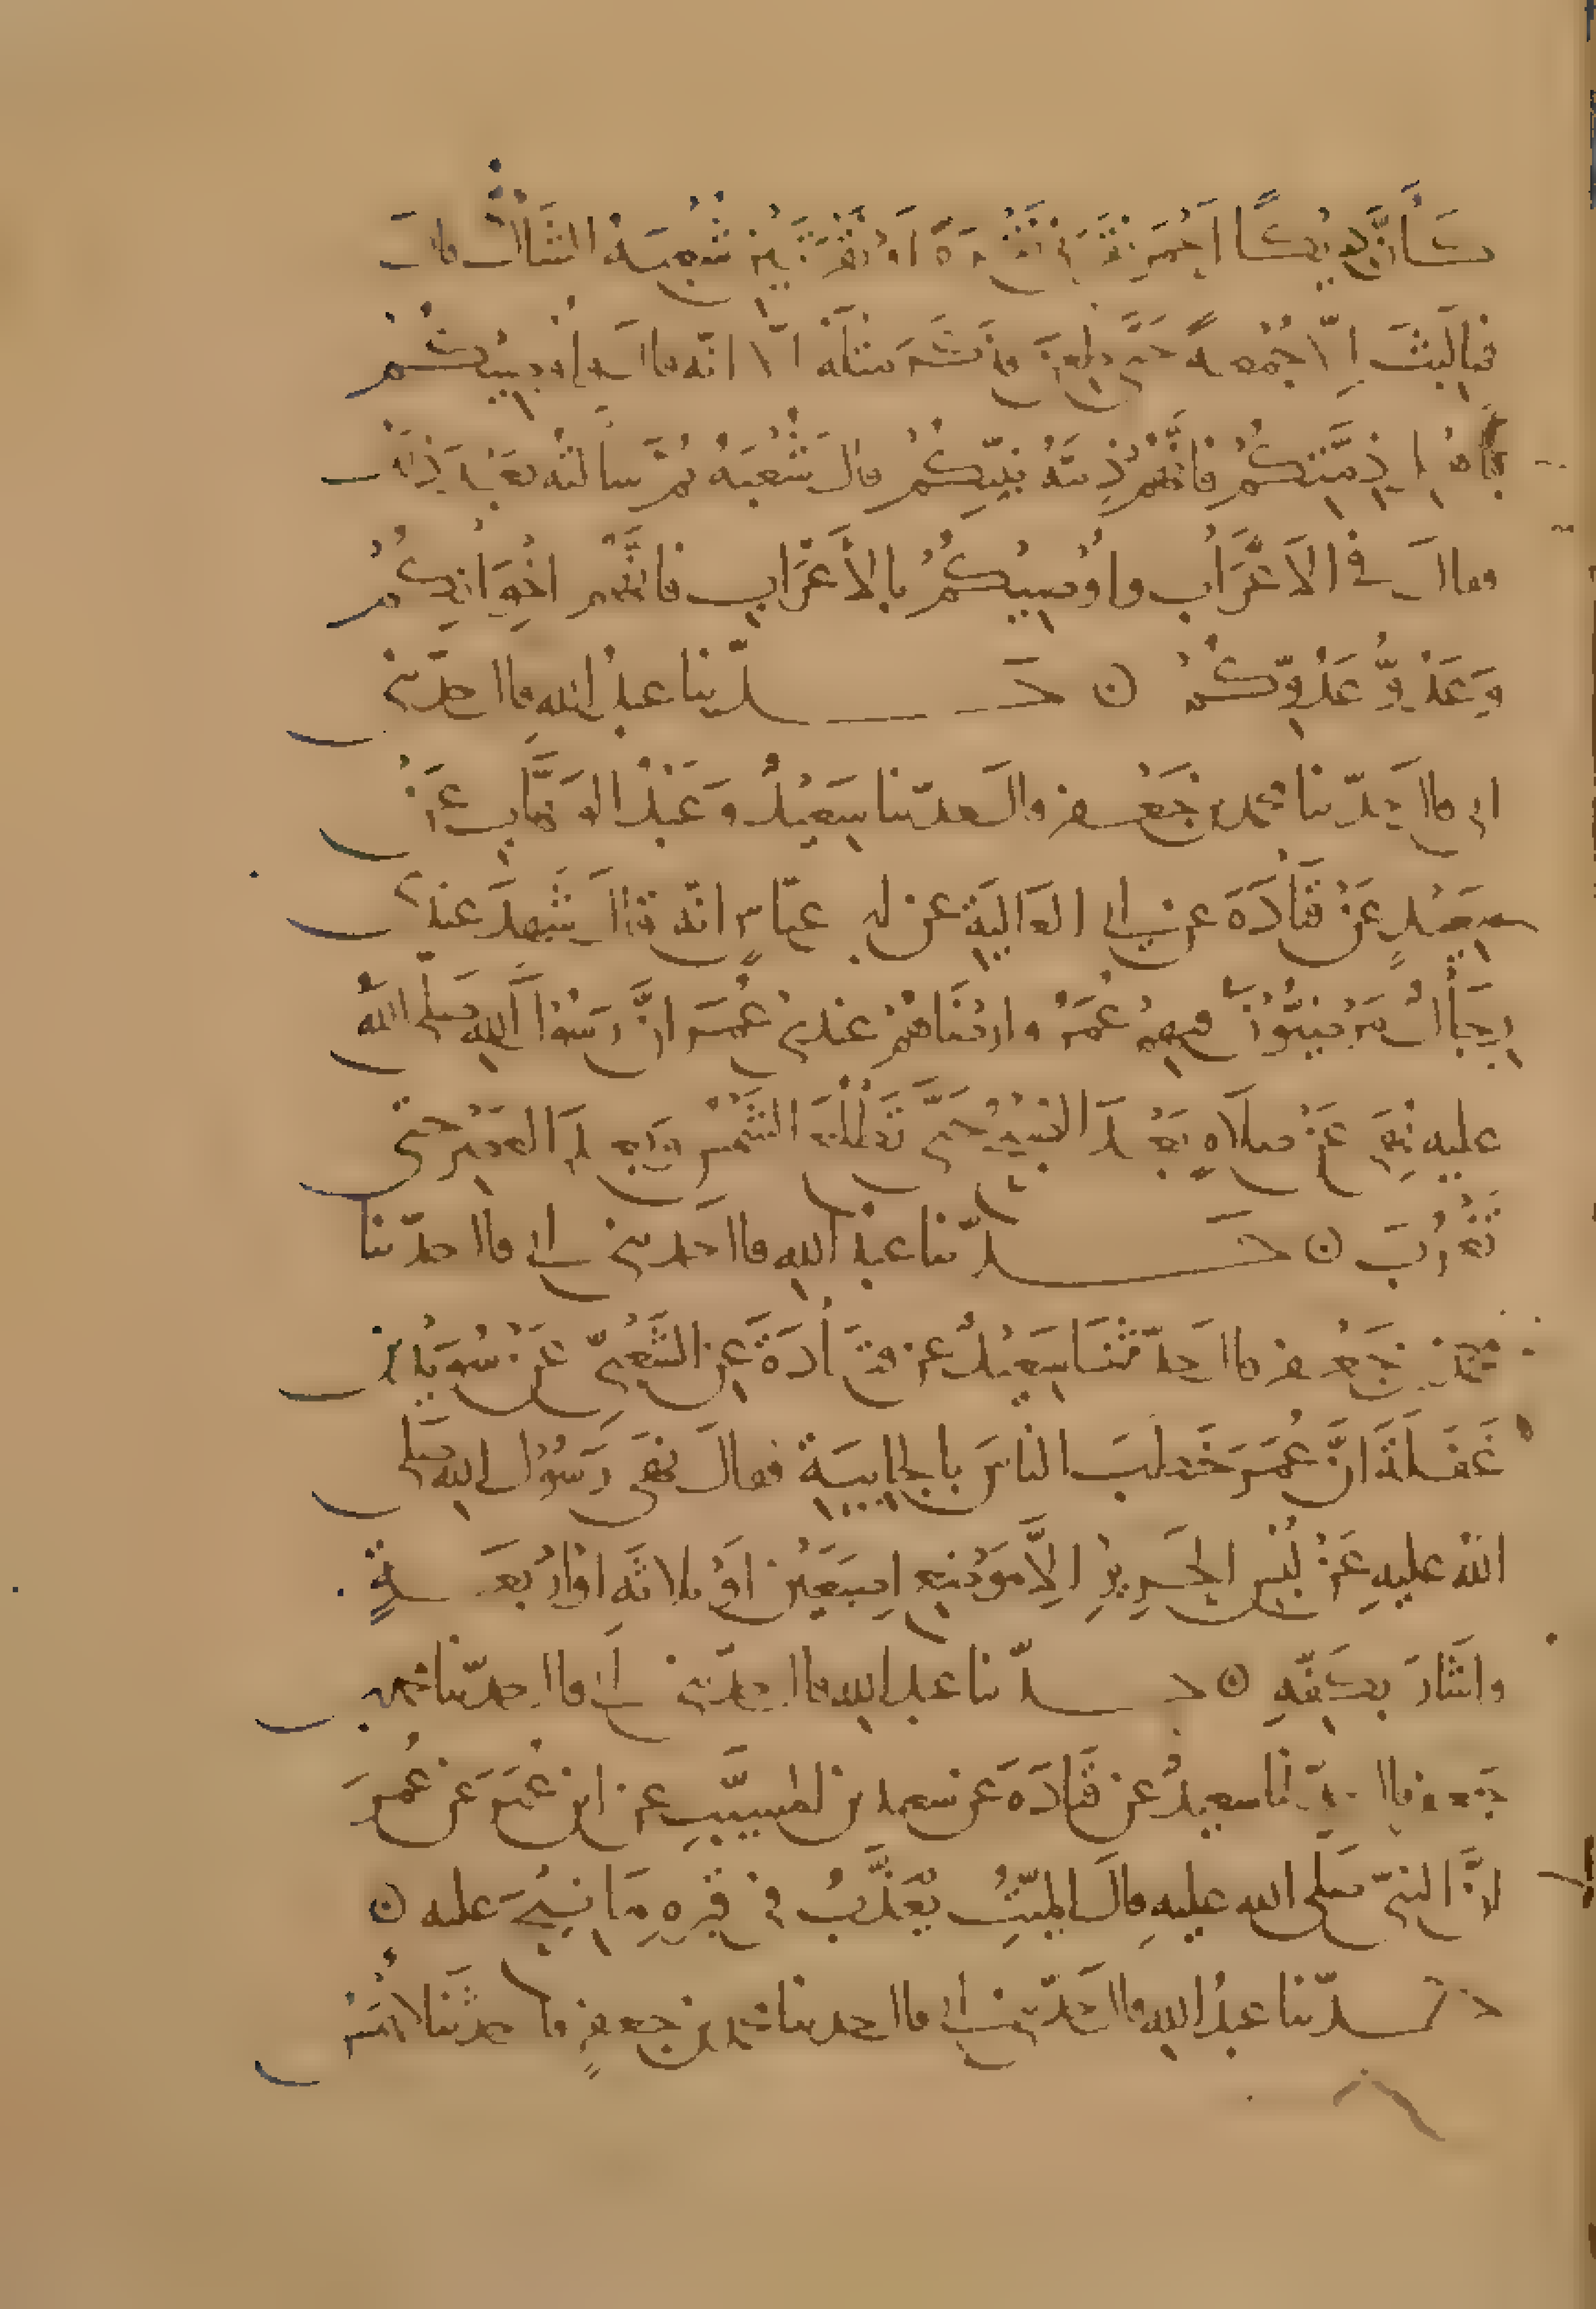 كَأَنَّ دِيكًا أَحْمَرَ نَقَرَنِي نَقْرَةً أَوْ نَقْرَتَيْنِ شُعْبَةُ الشَّاكُّ قالَ
فما لَبِثَ إِلَّا جُمُعةً حَتَّى طُعِنَ فذَكَرَ مثلَهُ الّا انّه قالَ وأُوصِيكُمْ
بِأَهْلِ ذِمَّتِكُمْ فَإِنَّهُمْ ذِمَّةُ نَبِيِّكُمْ قالَ شُعْبَةُ ثُمَّ سألتُه بَعْدَ ذَلِكَ
فقالَ في الأَعْرَابِ وأُوصِيكُمْ بالأَعْرَابِ فَإِنَّهُم إِخْوَانُكُمْ
وَعَدُوُّ عَدُوِّكُمْ ن حَدّثنا عبدُ الله قال حدّثني
ابي قال حَدّثنا محمد بن جَعْفر قالَ حدّثنا سَعِيدٌ وَعَبْدُ الوَهَّابِ عَنْ
سَعِيدٍ عَنْ قَتَادَةَ عن ابي العَالِيَةِ عن ابن عبّاسٍ انّه قالَ شَهِدَ عندي
رِجَالٌ مَرْضِيُّونَ فيهِمْ عُمَرُ وارْضَاهُمْ عندي عُمَرُ انَّ رَسُولَ اللهِ صَلّى اللهُ
عليه نَهَى عَنْ صلاةٍ بَعْدَ الصُّبْحِ حَتَّى تَطْلُعَ الشَّمْسُ وبَعْدَ العَصْرِ حتّى
تَغْرُبَ ن حَدّثنا عبدُ اللهِ قال حَدثني ابي قال حدّثنا
محمد بن جَعْفر قال حَدّثنَا سَعِيدٌ عن قَتَادَةَ عَنِ الشَّعْبِيِّ عَنْ سُوَيْدِ بن
غَفَلَةَ انَّ عُمَرَ خَطَبَ الناسَ بالجابِيَةِ فقالَ نَهَى رَسُولُ اللهِ صَلّى
اللهُ عليهِ عَنْ لُبْسِ الحَرِيرِ الّا مَوْضِعَ اصبَعَيْنِ أَوْ ثلاثَةٍ أوْ أَرْبَعَةٍ
وأَشَارَ بكَفِّهِ ن حدّثنا عبد الله قال حدّثني ابي قال حدّثنا محمد بن
جَعفر قال حدّثنا سعيدٌ عن قَتَادَةَ عَن سعيد بن المسيَّبِ عن ابن عُمَرَ عَن عُمرَ
انَّ النبيّ صَلى الله عليهِ قالَ الميّتُ يُعَذَّبُ في قبرِهِ مَا نِيحَ عليه ن
حدّثنا عبدُ الله قال حَدّثني ابي قال حدثنا محمد بن جعفرٍ قال حدثَنا شُعْبَةُ